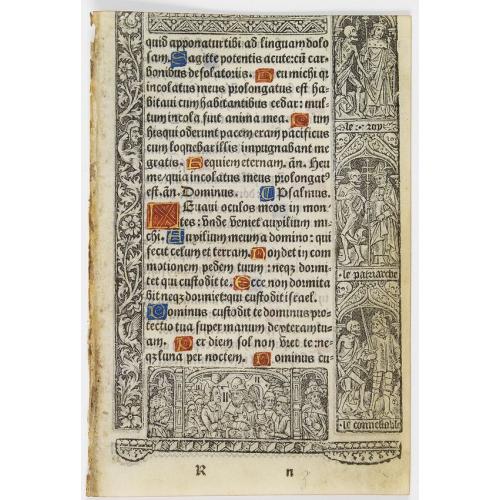 quid apponatur tibi ad linguam dolo
sam. Sagitte potentis acute: cũ car
bonibus desolatoriis. Heu michi q
incolatus meus prolongatus est ha
bitaui cum habitantibus cedar: mul
tum incola fuit anima mea. Cum
his qui oderunt pacem eram pacificus
cum loquebar illis impugnabant me
gratis. Requiem eternam. añ. Heu
me/ quia incolatus meus prolongat⁹
est. añ. Dominus. Psalmus.
Leuaui oculos meos in mon-
tes: vnde veniet auxilium mi-
chi. Auxilium meum a domino: qui
fecit celum et terram. Non det in com
motionem pedem tuum: neqz dormi-
tet qui custodit te. Ecce non dormita
bit neqz dormiet: qui custodit israel.
Dominus custodit te dominus pro-
tectio tua super manum dexteram tu-
am. Per diem sol non vret te: ne-
qz luna per noctem. Dominus cu-
le roy
le patriarche
le connestable
R n